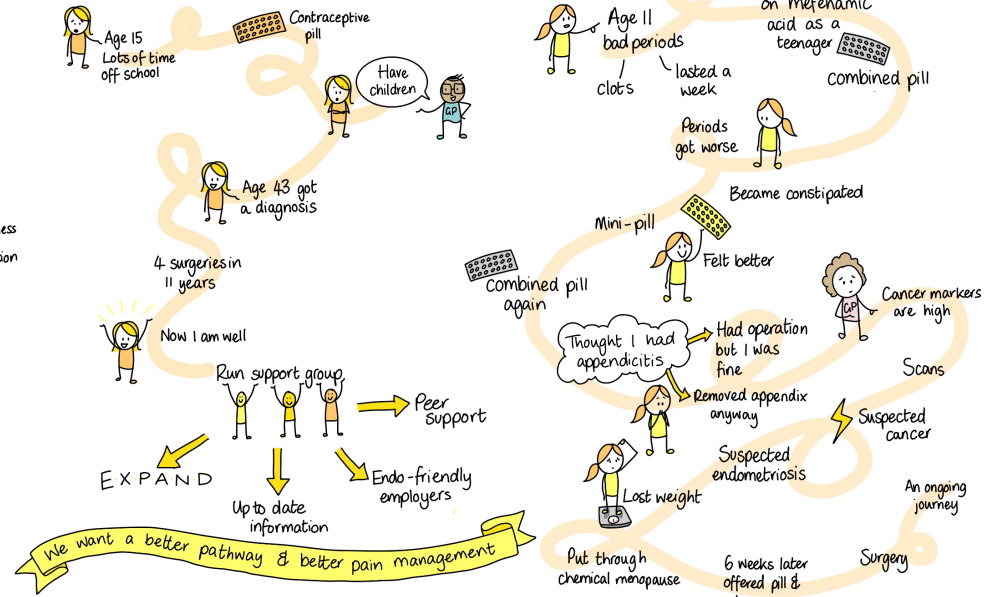 Age 15
Lots of time
off school
Contraceptive
pill
Have
children
GP
Age 43 got
a diagnosis
4 surgeries in
11 years
Now I am well
Run support group
Peer
support
EXPAND
Up to date
information
Endo-friendly
employers
We want a better pathway & better pain management
ess
ion
Age 11
bad periods
clots
lasted a
week
on mefenamic
acid as a
teenager
combined pill
Periods
got worse
Became constipated
Mini-pill
Felt better
Combined pill
again
Thought I had
appendicitis
Had operation
but I was
fine
Removed appendix
anyway
GP
Cancer markers
are high
Scans
Suspected
cancer
Suspected
endometriosis
Lost weight
Put through
chemical menopause
6 weeks later
offered pill &
Surgery
An ongoing
journey